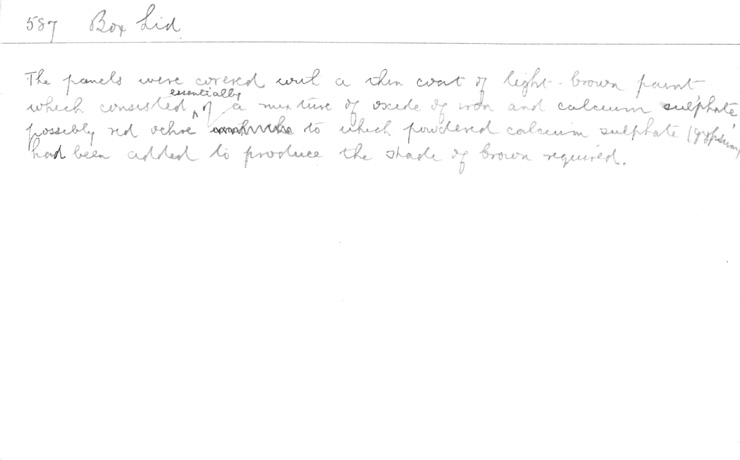 587 Box Lid
The panels were covered with a thin coat of light-brown paint
which consisted essentially of a mixture of oxide of iron and calcium sulphate,
possibly red ochre to which powdered calcium sulphate (gypsum)
had been added to produce the shade of brown required.